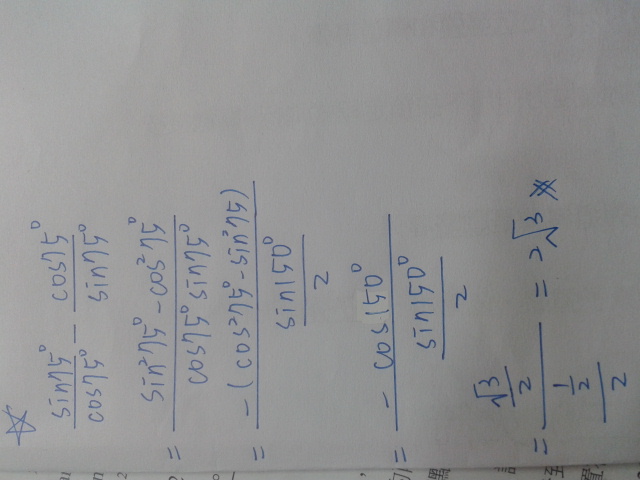 ☆ sin75°/cos75° - cos75°/sin75°
= (sin²75° - cos²75°)/(cos75° sin75°)
= -(cos²75° - sin²75)/(sin150°/2)
= - cos150°/(sin150°/2)
= (√3/2)/((1/2)/2) = 2√3